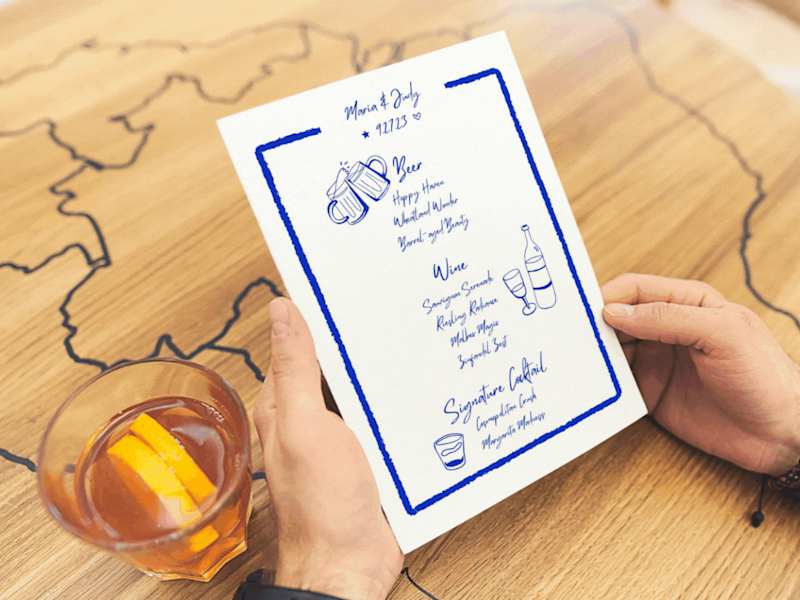 Maria & Judy
★ 92723 ♡
Beer
Hoppy Haven
Wheatland Wonder
Barrel-aged Beauty
Wine
Sauvignon Serenade
Riesling Radiance
Malbec Magic
Zinfandel Zest
Signature Cocktail
Cosmopolitan Crush
Margarita Madness